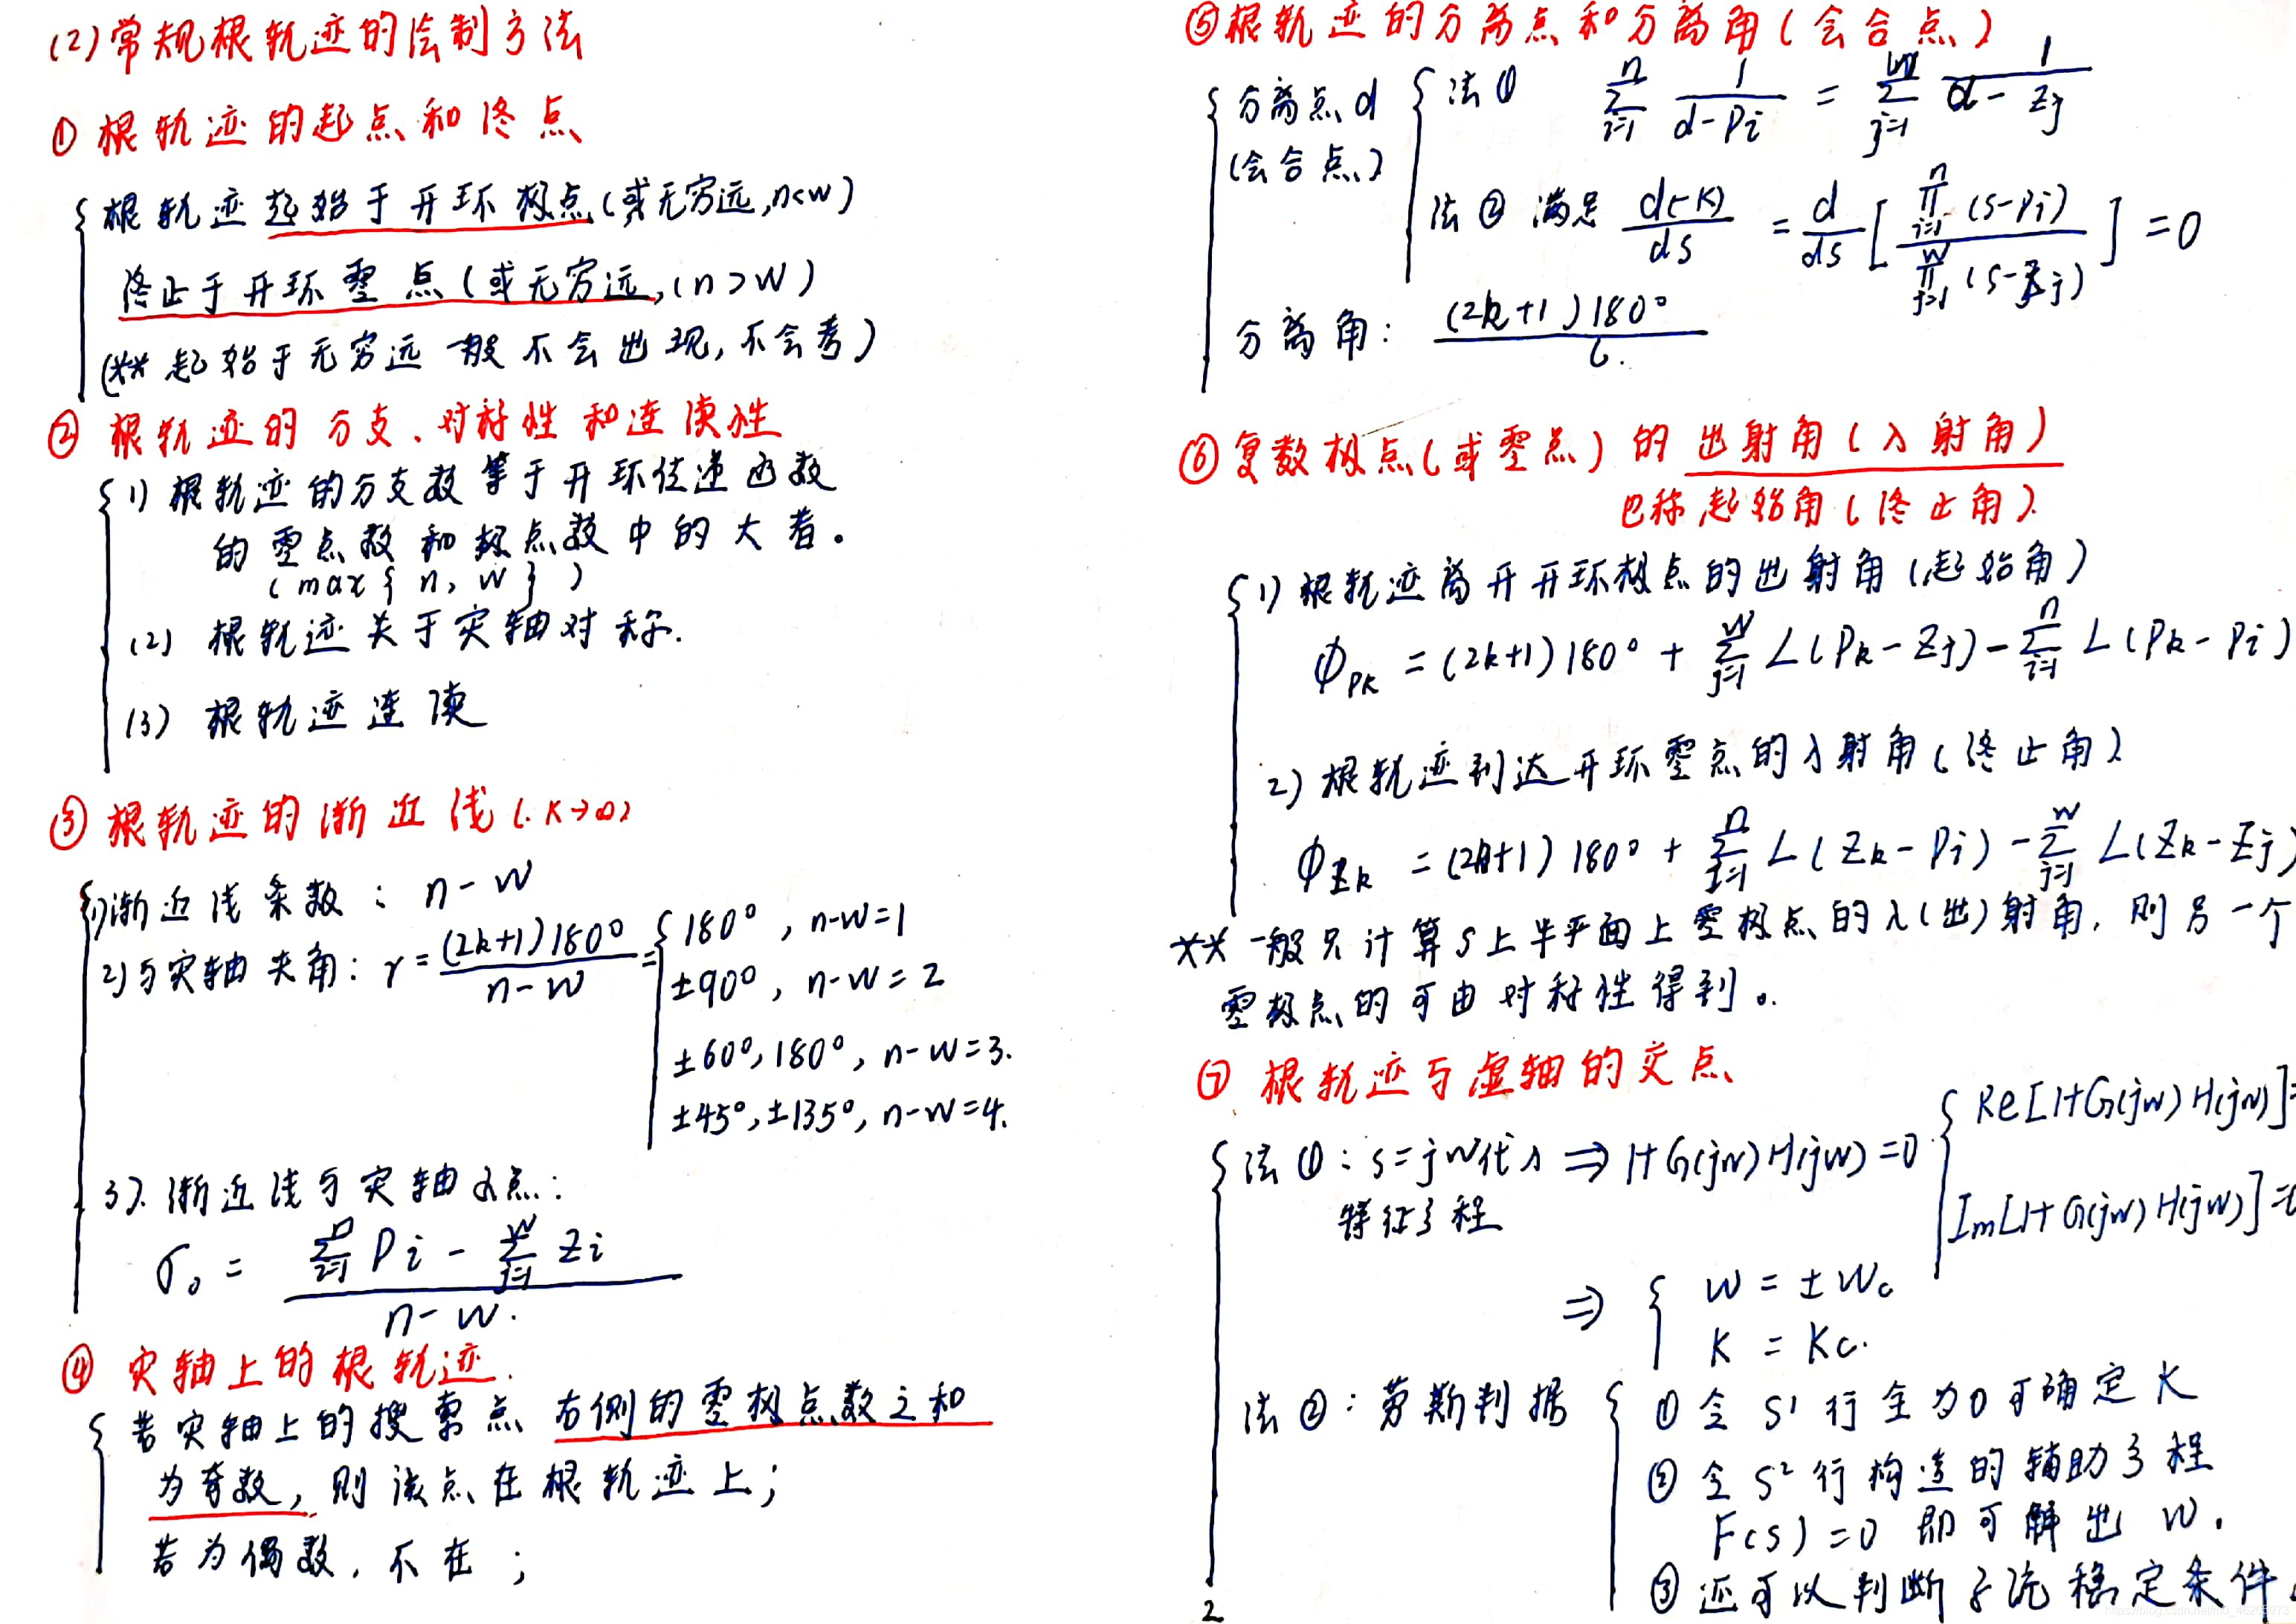 (2)常规根轨迹的绘制方法
① 根轨迹的起点和终点
根轨迹起始于开环极点(或无穷远,n<w)
终止于开环零点(或无穷远,(n>w)
(** 起始于无穷远一般不会出现,不会考)
② 根轨迹的分支、对称性和连续性
1) 根轨迹的分支数等于开环传递函数
的零点数和极点数中的大者。
(max{n, w})
(2) 根轨迹关于实轴对称.
(3) 根轨迹连续
③ 根轨迹的渐近线(.K→∞)
1)渐近线条数: n-w
2)与实轴夹角: γ = (2k+1)180° / n-w = { 180°, n-w=1
±90°, n-w=2
±60°,180°, n-w=3.
±45°,±135°, n-w=4.
3). 渐近线与实轴交点:
σ₀ = (∑ᵢ₌₁ⁿ Pi - ∑ⱼ₌₁ʷ Zi) / n-w.
④ 实轴上的根轨迹.
若实轴上的搜索点右侧的零极点数之和
为奇数, 则该点在根轨迹上;
若为偶数, 不在;
⑤根轨迹的分离点和分离角(会合点)
分离点d
(会合点)
法① ∑ᵢ₌₁ⁿ 1/(d-Pi) = ∑ⱼ₌₁ʷ 1/(d-Zj)
法② 满足 d(-K)/ds = d/ds [ ∏ᵢ₌₁ⁿ (s-Pi) / ∏ⱼ₌₁ʷ (s-Zj) ] = 0
分离角: (2k+1)180° / L.
⑥复数极点(或零点)的出射角(入射角)
也称起始角(终止角)
1) 根轨迹离开开环极点的出射角(起始角)
φPk = (2k+1)180° + ∑ⱼ₌₁ʷ ∠(Pk-Zj) - ∑ᵢ₌₁ⁿ ∠(Pk-Pi)
2) 根轨迹到达开环零点的入射角(终止角)
φZk = (2k+1)180° + ∑ᵢ₌₁ⁿ ∠(Zk-Pi) - ∑ⱼ₌₁ʷ ∠(Zk-Zj)
** 一般只计算s上半平面上零极点的入(出)射角, 则另一个
零极点的可由对称性得到。
⑦ 根轨迹与虚轴的交点
法①: s=jw代入 ⇒ 1+G(jw)H(jw)=0 { Re[1+G(jw)H(jw)]=
特征方程
Im[1+G(jw)H(jw)]=0
⇒ { w = ±wc
K = Kc.
法②: 劳斯判据 { ① 令 s¹ 行全为0可确定K
② 令 s² 行构造的辅助方程
F(s)=0 即可解出 w.
③ 还可以判断系统稳定条件.
2